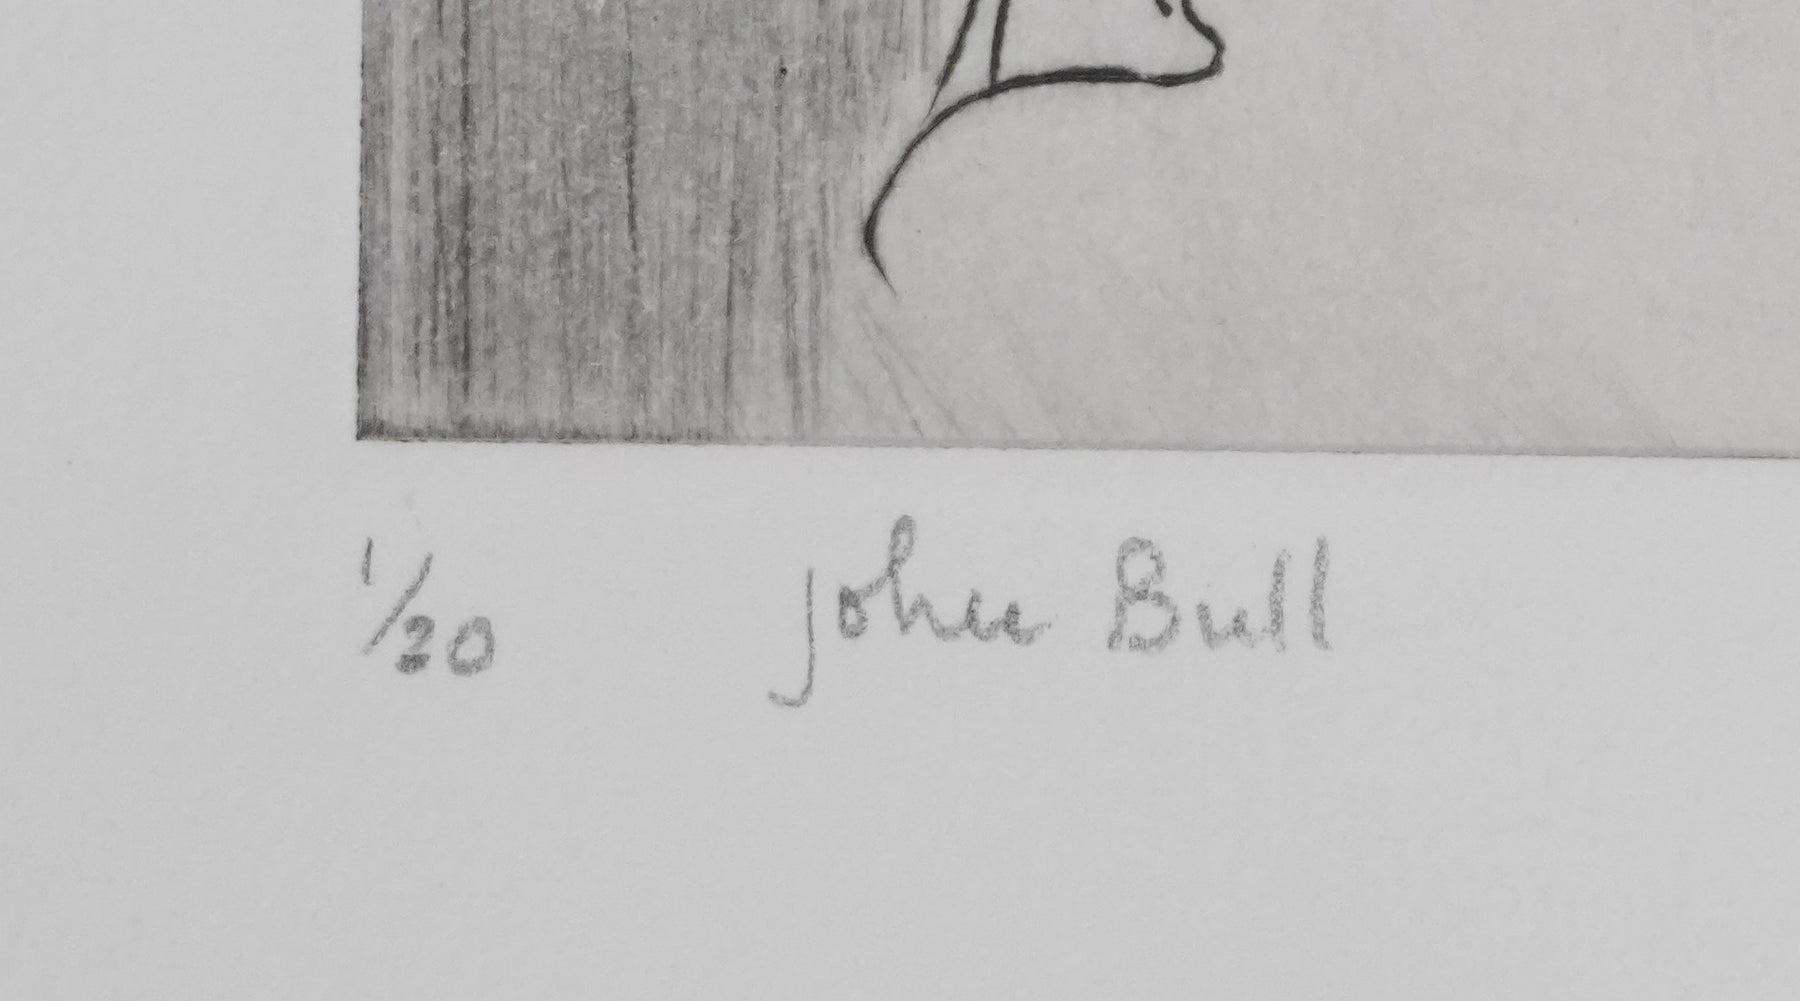 1/20 John Bull